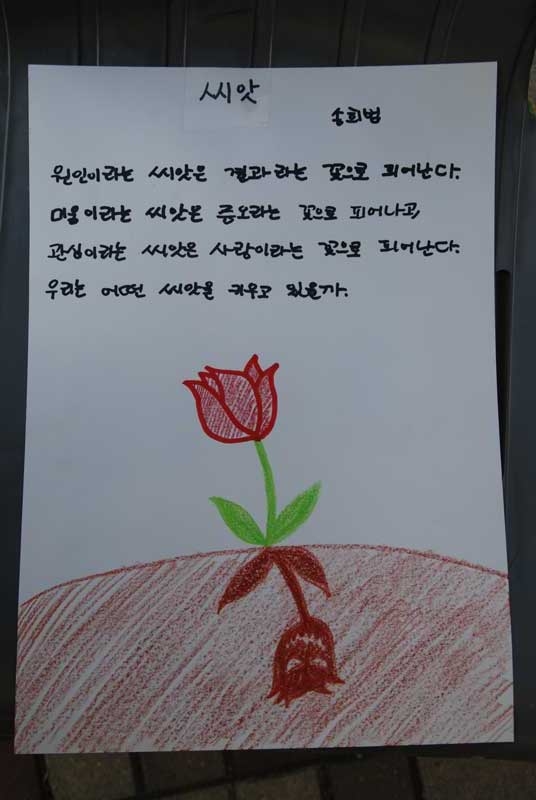 씨앗
송희범
원인이라는 씨앗은 결과라는 꽃으로 피어난다.
미움이라는 씨앗은 증오라는 꽃으로 피어나고,
관심이라는 씨앗은 사랑이라는 꽃으로 피어난다.
우리는 어떤 씨앗을 키우고 있을까.